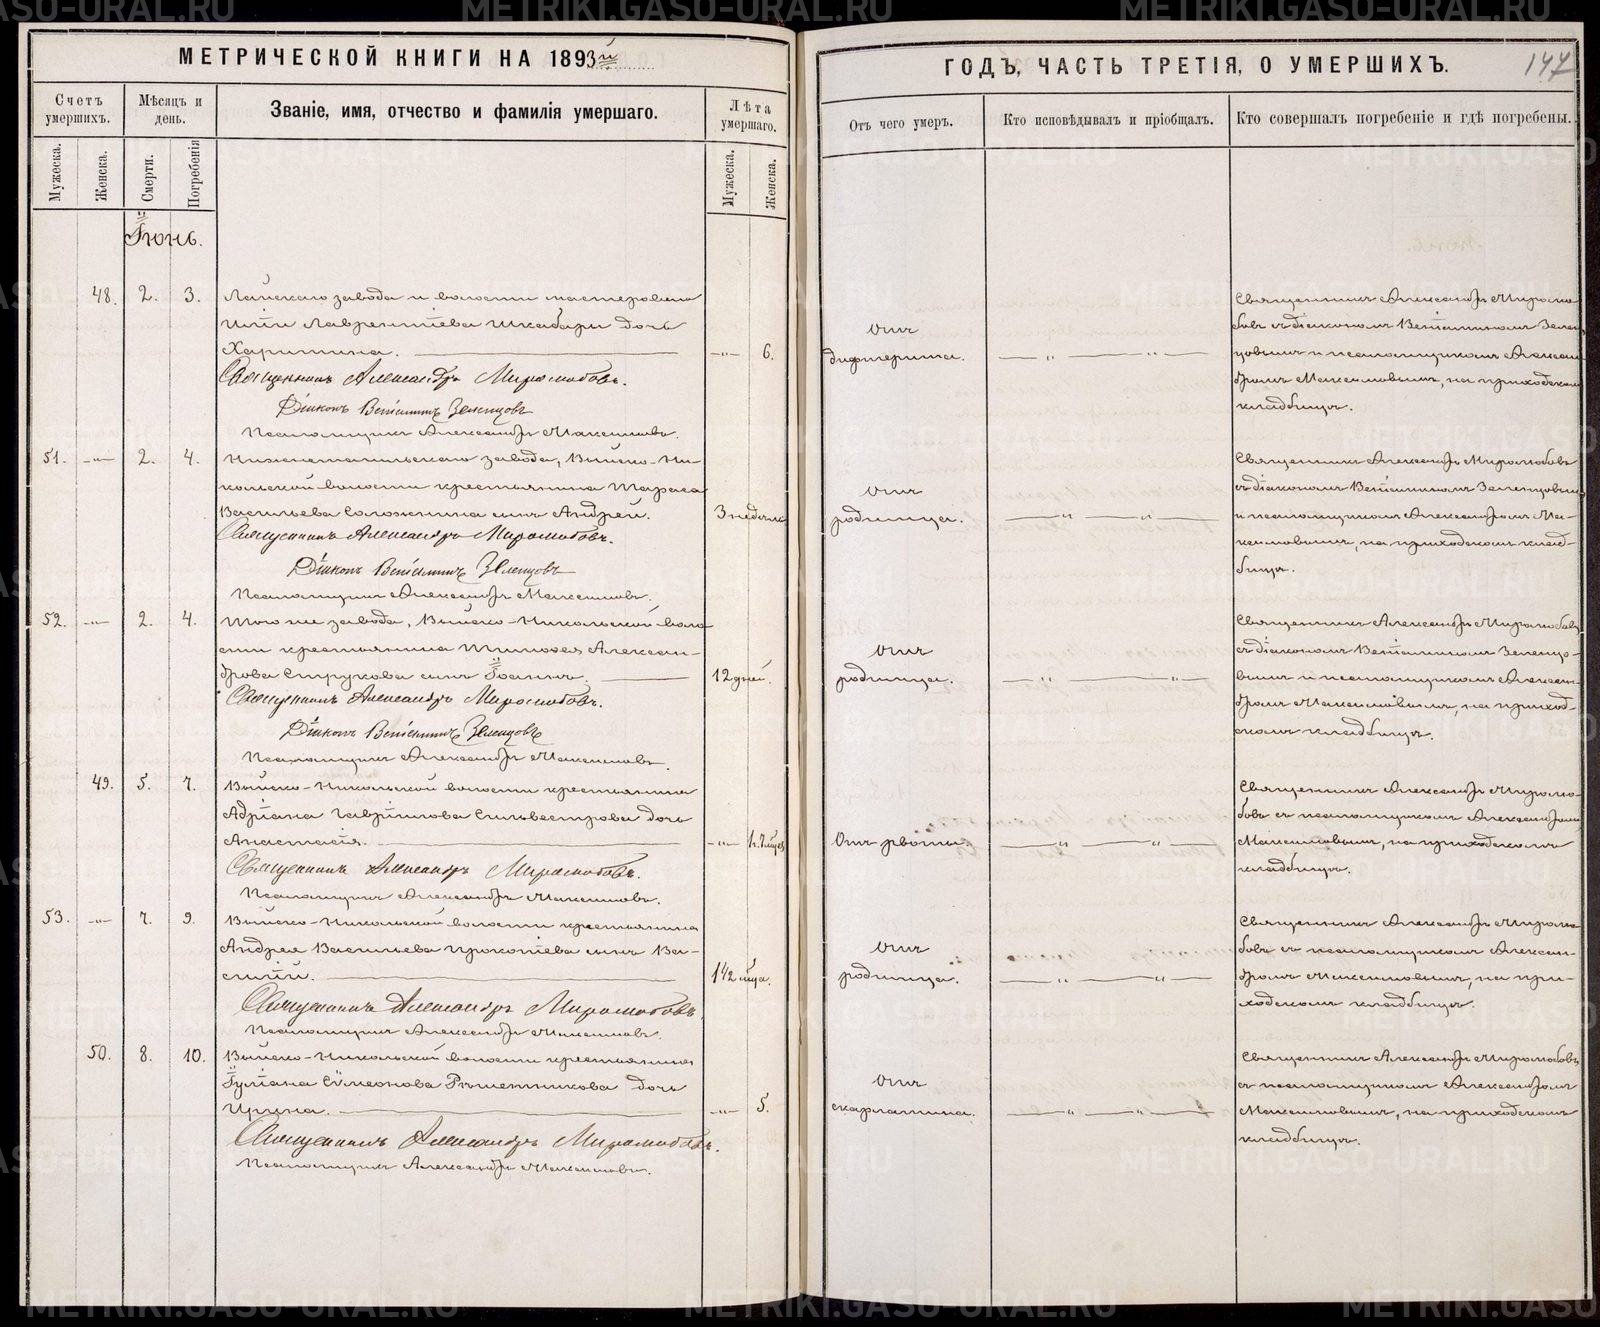 МЕТРИЧЕСКОЙ КНИГИ НА 1893й
Счетъ умершихъ.
Мѣсяцъ и день.
Званіе, имя, отчество и фамилія умершаго.
Лѣта умершаго.
Мужеска.
Женска.
Смерти.
Погребенія
Мужеска.
Женска.
Іюнь.
48. 2. 3.
Лайскаго завода и волости мастероваго
Лаврентіева дочь
Харитина. 6.
Священникъ Александръ Миролюбовъ.
Діаконъ Веніаминъ Зеленцовъ
Псаломщикъ Александръ Максимовъ.
51. —"— 2. 4.
Нижнетагильскаго завода, Выйско-Ни-
кольской волости крестьянина Тараса
Васильева Соложнина сынъ Андрей. 3 недѣли
Священникъ Александръ Миролюбовъ.
Діаконъ Веніаминъ Зеленцовъ
Псаломщикъ Александръ Максимовъ.
52. —"— 2. 4.
Того же завода, Выйско-Никольской воло
сти крестьянина Тимофея Алексан-
дрова Струкова сынъ Іоаннъ. 12 дней.
Священникъ Александръ Миролюбовъ.
Діаконъ Веніаминъ Зеленцовъ
Псаломщикъ Александръ Максимовъ.
49. 5. 7.
Выйско-Никольской волости крестьянина
Адріана Гаврилова Сильвестрова дочь
Анастасія. —"—
Священникъ Александръ Миролюбовъ.
Псаломщикъ Александръ Максимовъ.
53. —"— 7. 9.
Выйско-Никольской волости крестьянина
Андрея Васильева Прокопіева сынъ Ва-
силій. 1½ мца.
Священникъ Александръ Миролюбовъ.
Псаломщикъ Александръ Максимовъ.
50. 8. 10.
Выйско-Никольской волости крестьянина
Іуліана Сѵмеонова Рѣшетникова дочь
Ирина. —"— 5.
Священникъ Александръ Миролюбовъ.
Псаломщикъ Александръ Максимовъ.
ГОДЪ, ЧАСТЬ ТРЕТІЯ, О УМЕРШИХЪ.
147
Отъ чего умеръ.
Кто исповѣдывалъ и пріобщалъ.
Кто совершалъ погребеніе и гдѣ погребены.
Отъ
дифтерита.
Священникъ Александръ Миролю-
бовъ съ діакономъ Веніаминомъ Зелен
цовымъ и псаломщикомъ Алексан
дромъ Максимовымъ, на приходскомъ
кладбищѣ.
Отъ
родимца.
Священникъ Александръ Миролюбовъ
съ діакономъ Веніаминомъ Зеленцовымъ
и псаломщикомъ Александромъ Ма-
ксимовымъ, на приходскомъ клад-
бищѣ.
Отъ
родимца.
Священникъ Александръ Миролюбовъ
съ діакономъ Веніаминомъ Зеленцо-
вымъ и псаломщикомъ Алексан-
дромъ Максимовымъ, на приход-
скомъ кладбищѣ.
Отъ рвоты.
Священникъ Александръ Миролю-
бовъ съ псаломщикомъ Александромъ
Максимовымъ, на приходскомъ
кладбищѣ.
Отъ
родимца.
Священникъ Александръ Миролю-
бовъ съ псаломщикомъ Алексан-
дромъ Максимовымъ, на при-
ходскомъ кладбищѣ.
Отъ
скарлатина.
Священникъ Александръ Миролюбовъ
съ псаломщикомъ Александромъ
Максимовымъ, на приходскомъ
кладбищѣ.
METRIKI.GASO-URAL.RU